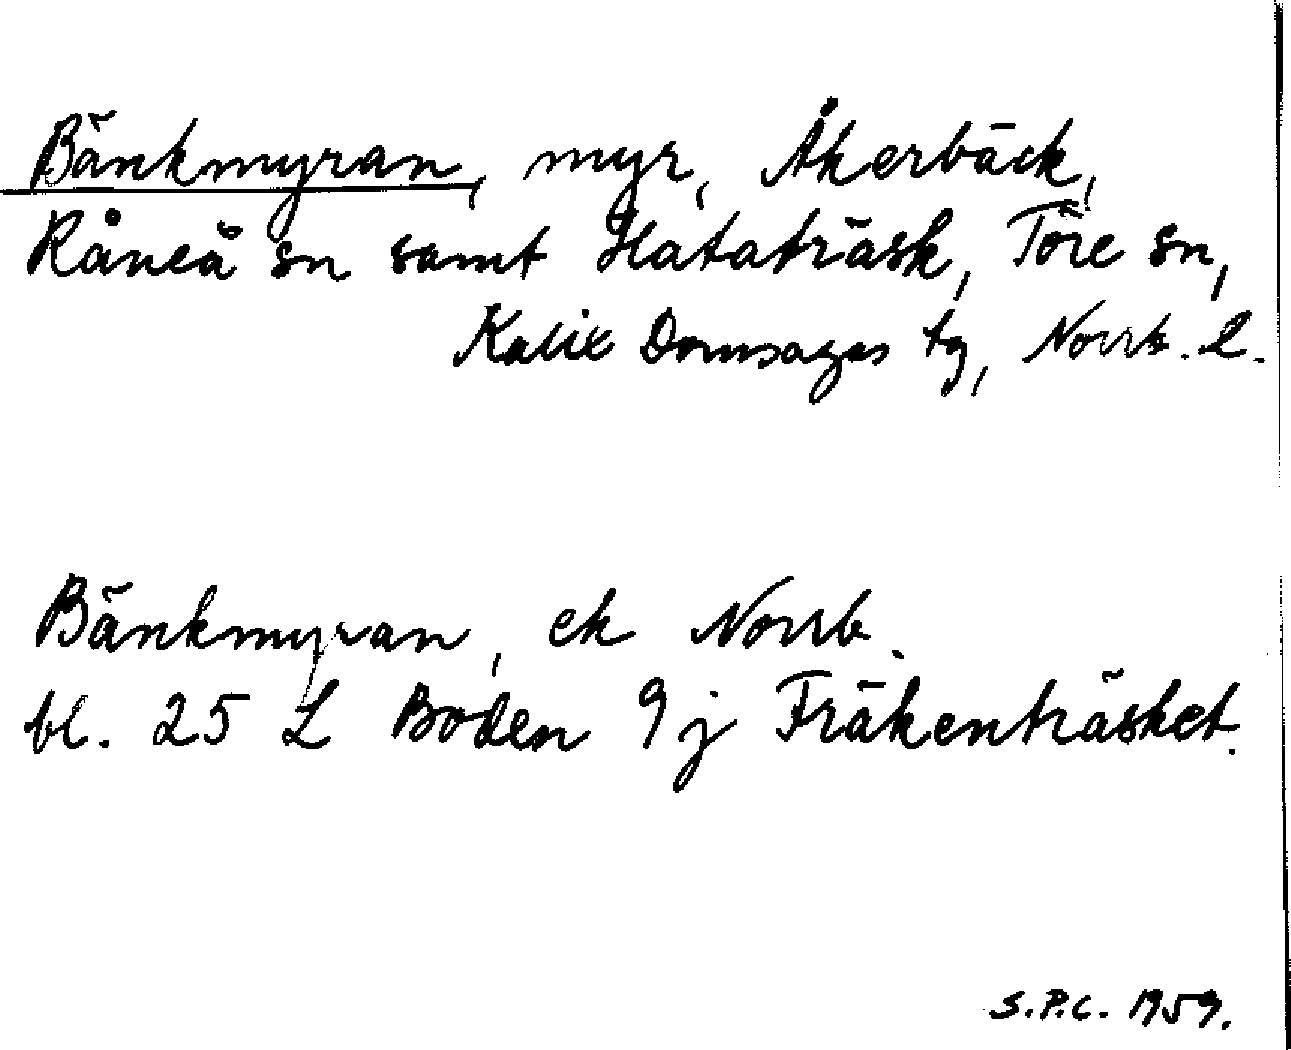 Bänkmyran, myr, Åkerbäck,
Råneå sn samt Hataträsk, Töre sn,
Kalix Domsagas tg, Norrb. l.
Bänkmyran, ek Norrb.
bl. 25 L Boden 9 j Fräkenträsket.
S.P.C. 1959.